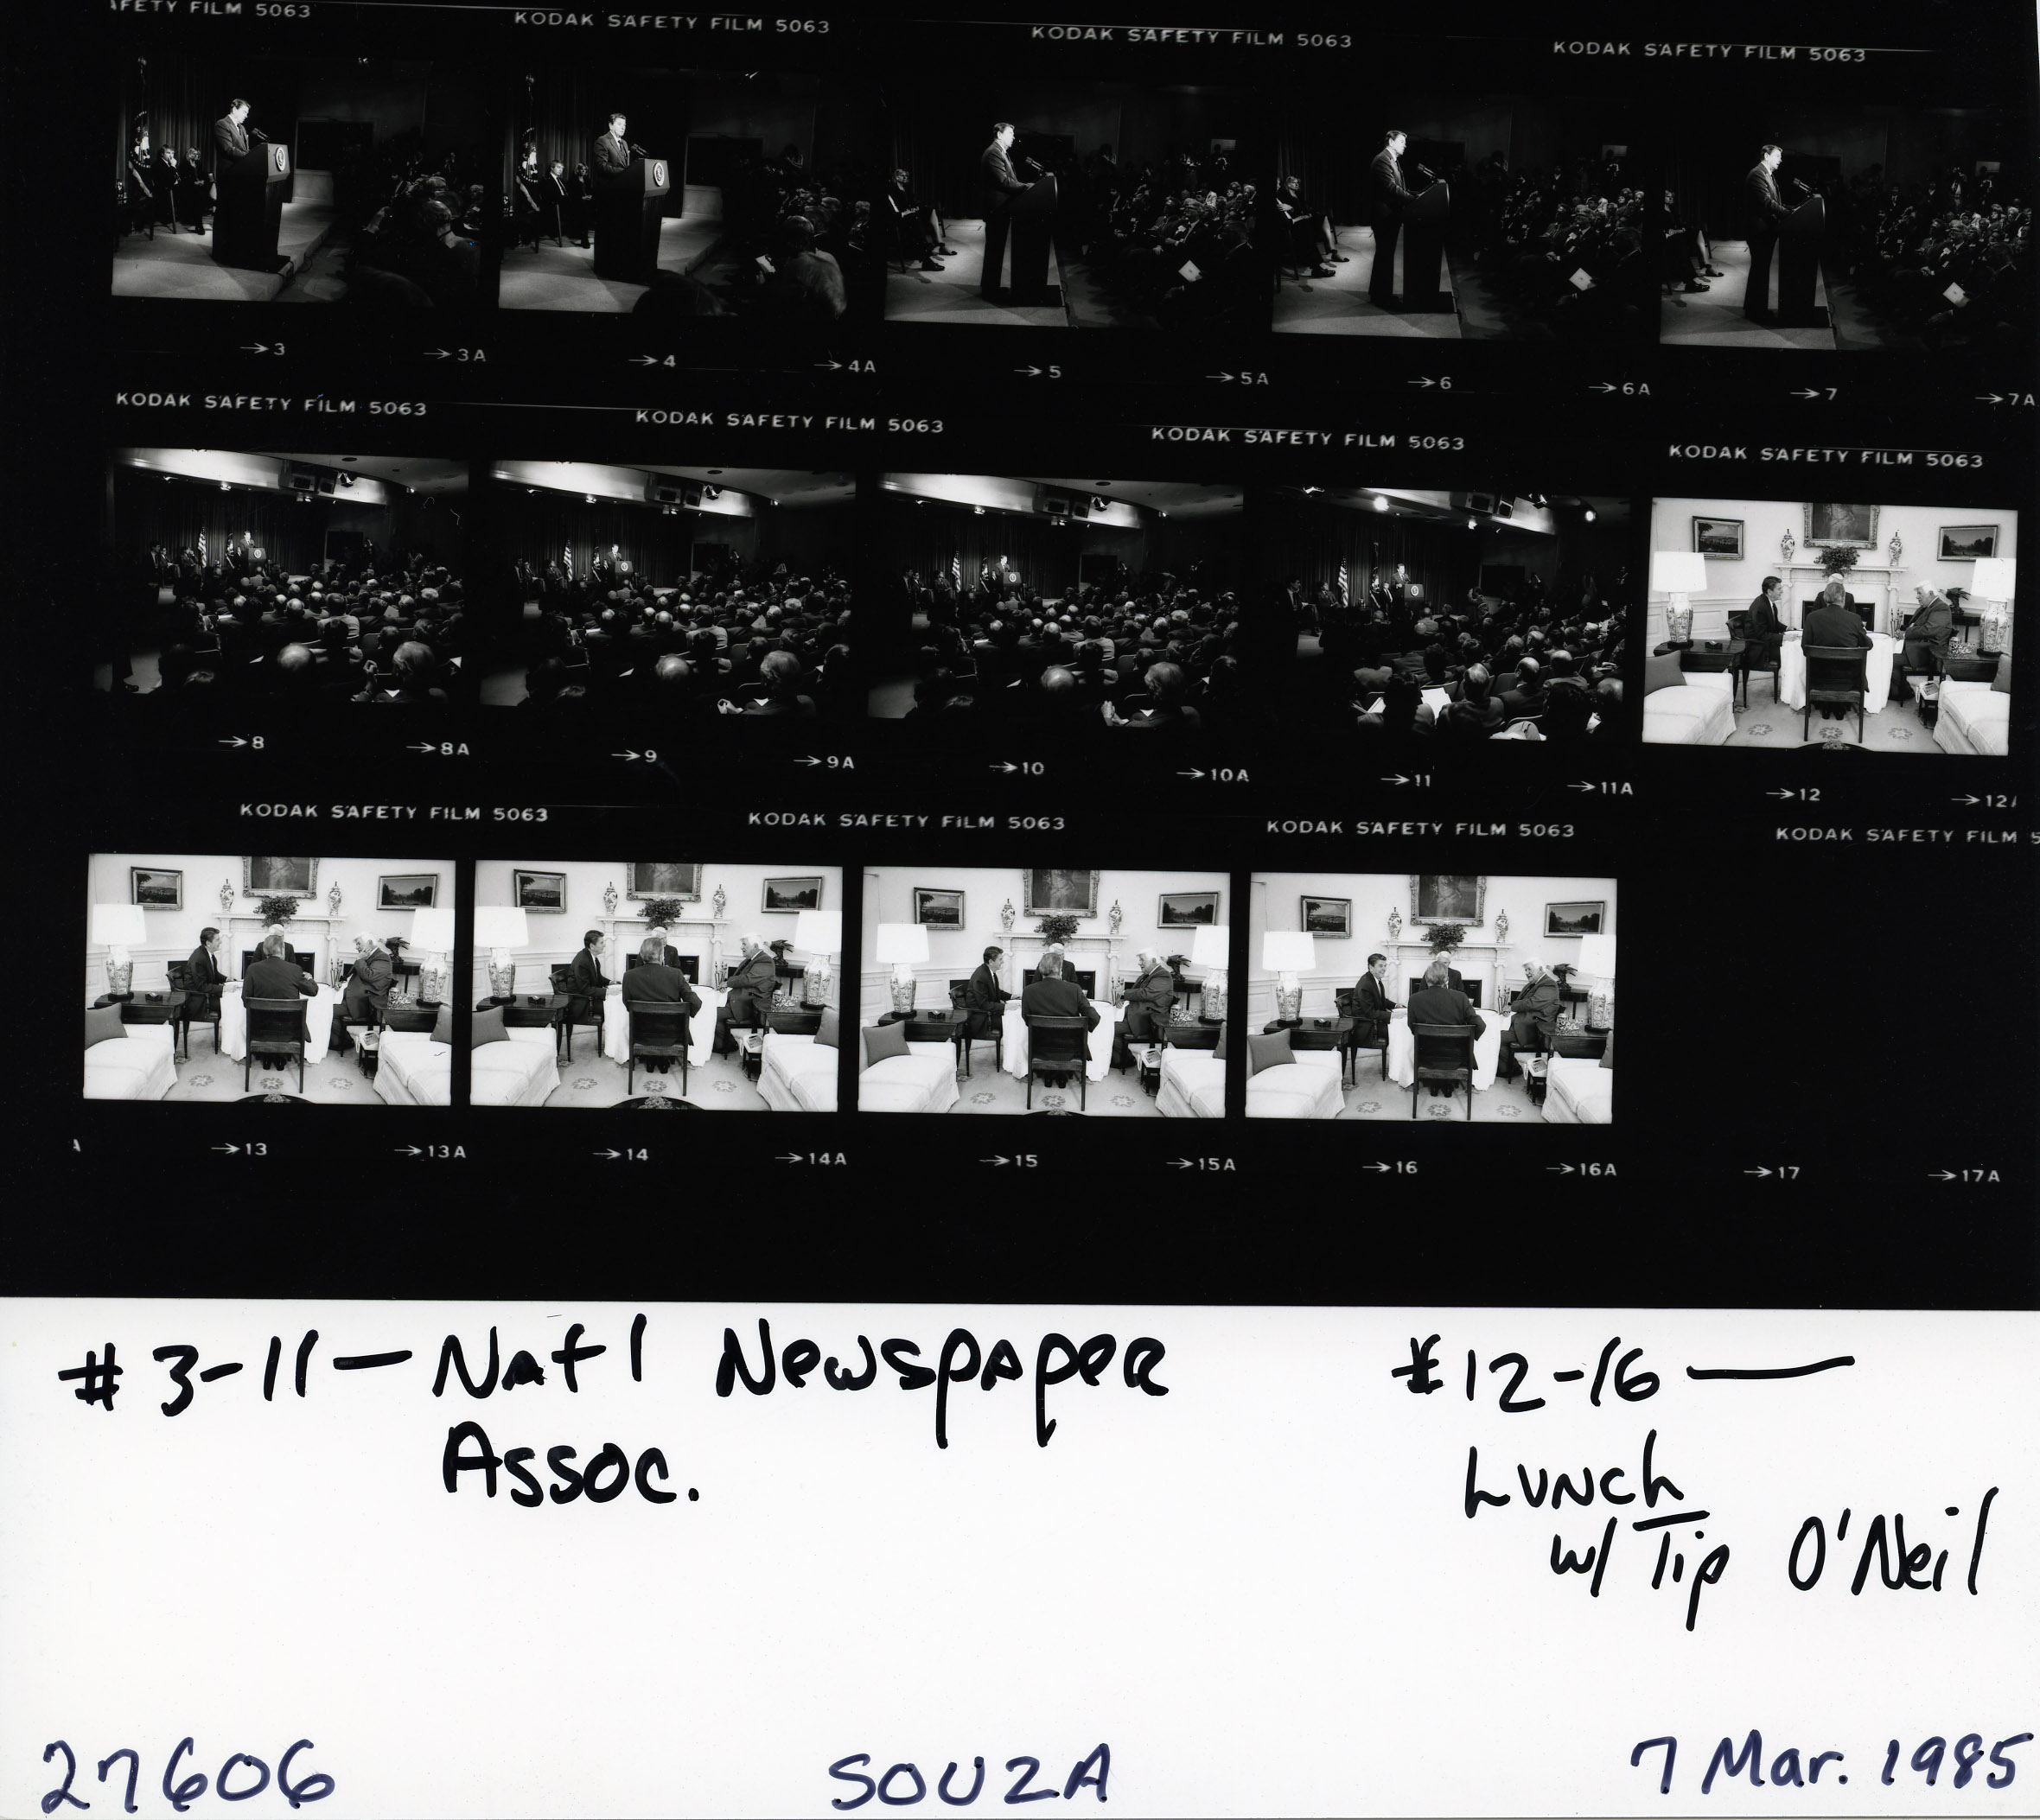 AFETY FILM 5063 KODAK SAFETY FILM 5063 KODAK SAFETY FILM 5063 KODAK SAFETY FILM 5063
→3 →3A →4 →4A →5 →5A →6 →6A →7 →7A
KODAK SAFETY FILM 5063 KODAK SAFETY FILM 5063 KODAK SAFETY FILM 5063 KODAK SAFETY FILM 5063
→8 →8A →9 →9A →10 →10A →11 →11A →12 →12
KODAK SAFETY FILM 5063 KODAK SAFETY FILM 5063 KODAK SAFETY FILM 5063 KODAK SAFETY FILM 5
A →13 →13A →14 →14A →15 →15A →16 →16A →17 →17A
#3-11— Nat'l Newspaper
Assoc.
#12-16 —
Lunch
w/ Tip O'Neil
27606 SOUZA 7 Mar. 1985